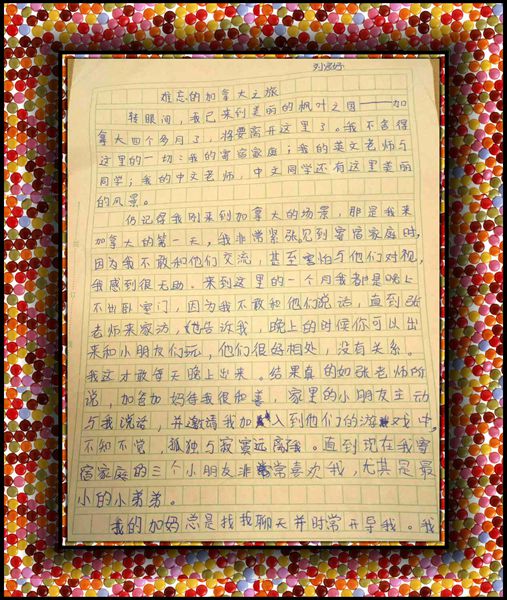 难忘的加拿大之旅
转眼间，我已来到美丽的枫叶之国——加
拿大四个多月了，将要离开这里了。我不舍得
这里的一切：我的寄宿家庭；我的英文老师与
同学；我的中文老师，中文同学还有这里美丽
的风景。
仍记得我刚来到加拿大的场景，那是我来
加拿大的第一天，我非常紧张见到寄宿家庭时，
因为我不敢和他们交流，甚至害怕与他们对视，
我感到很无助。来到这里的一个月我都是晚上
不出卧室门，因为我不敢和他们说话，直到张
老师来家访，她告诉我，晚上的时候你可以出
来和小朋友们玩，他们很好相处，没有关系。
我这才敢每天晚上出来。结果真的如张老师所
说，加爸加妈待我很和善，家里的小朋友主动
与我说话，并邀请我加入到他们的游戏中，
不知不觉，孤独与寂寞远离我。直到现在我寄
宿家庭的三个小朋友非常喜欢我，尤其是最
小的小弟弟。
我的加妈总是找我聊天并时常开导我。我